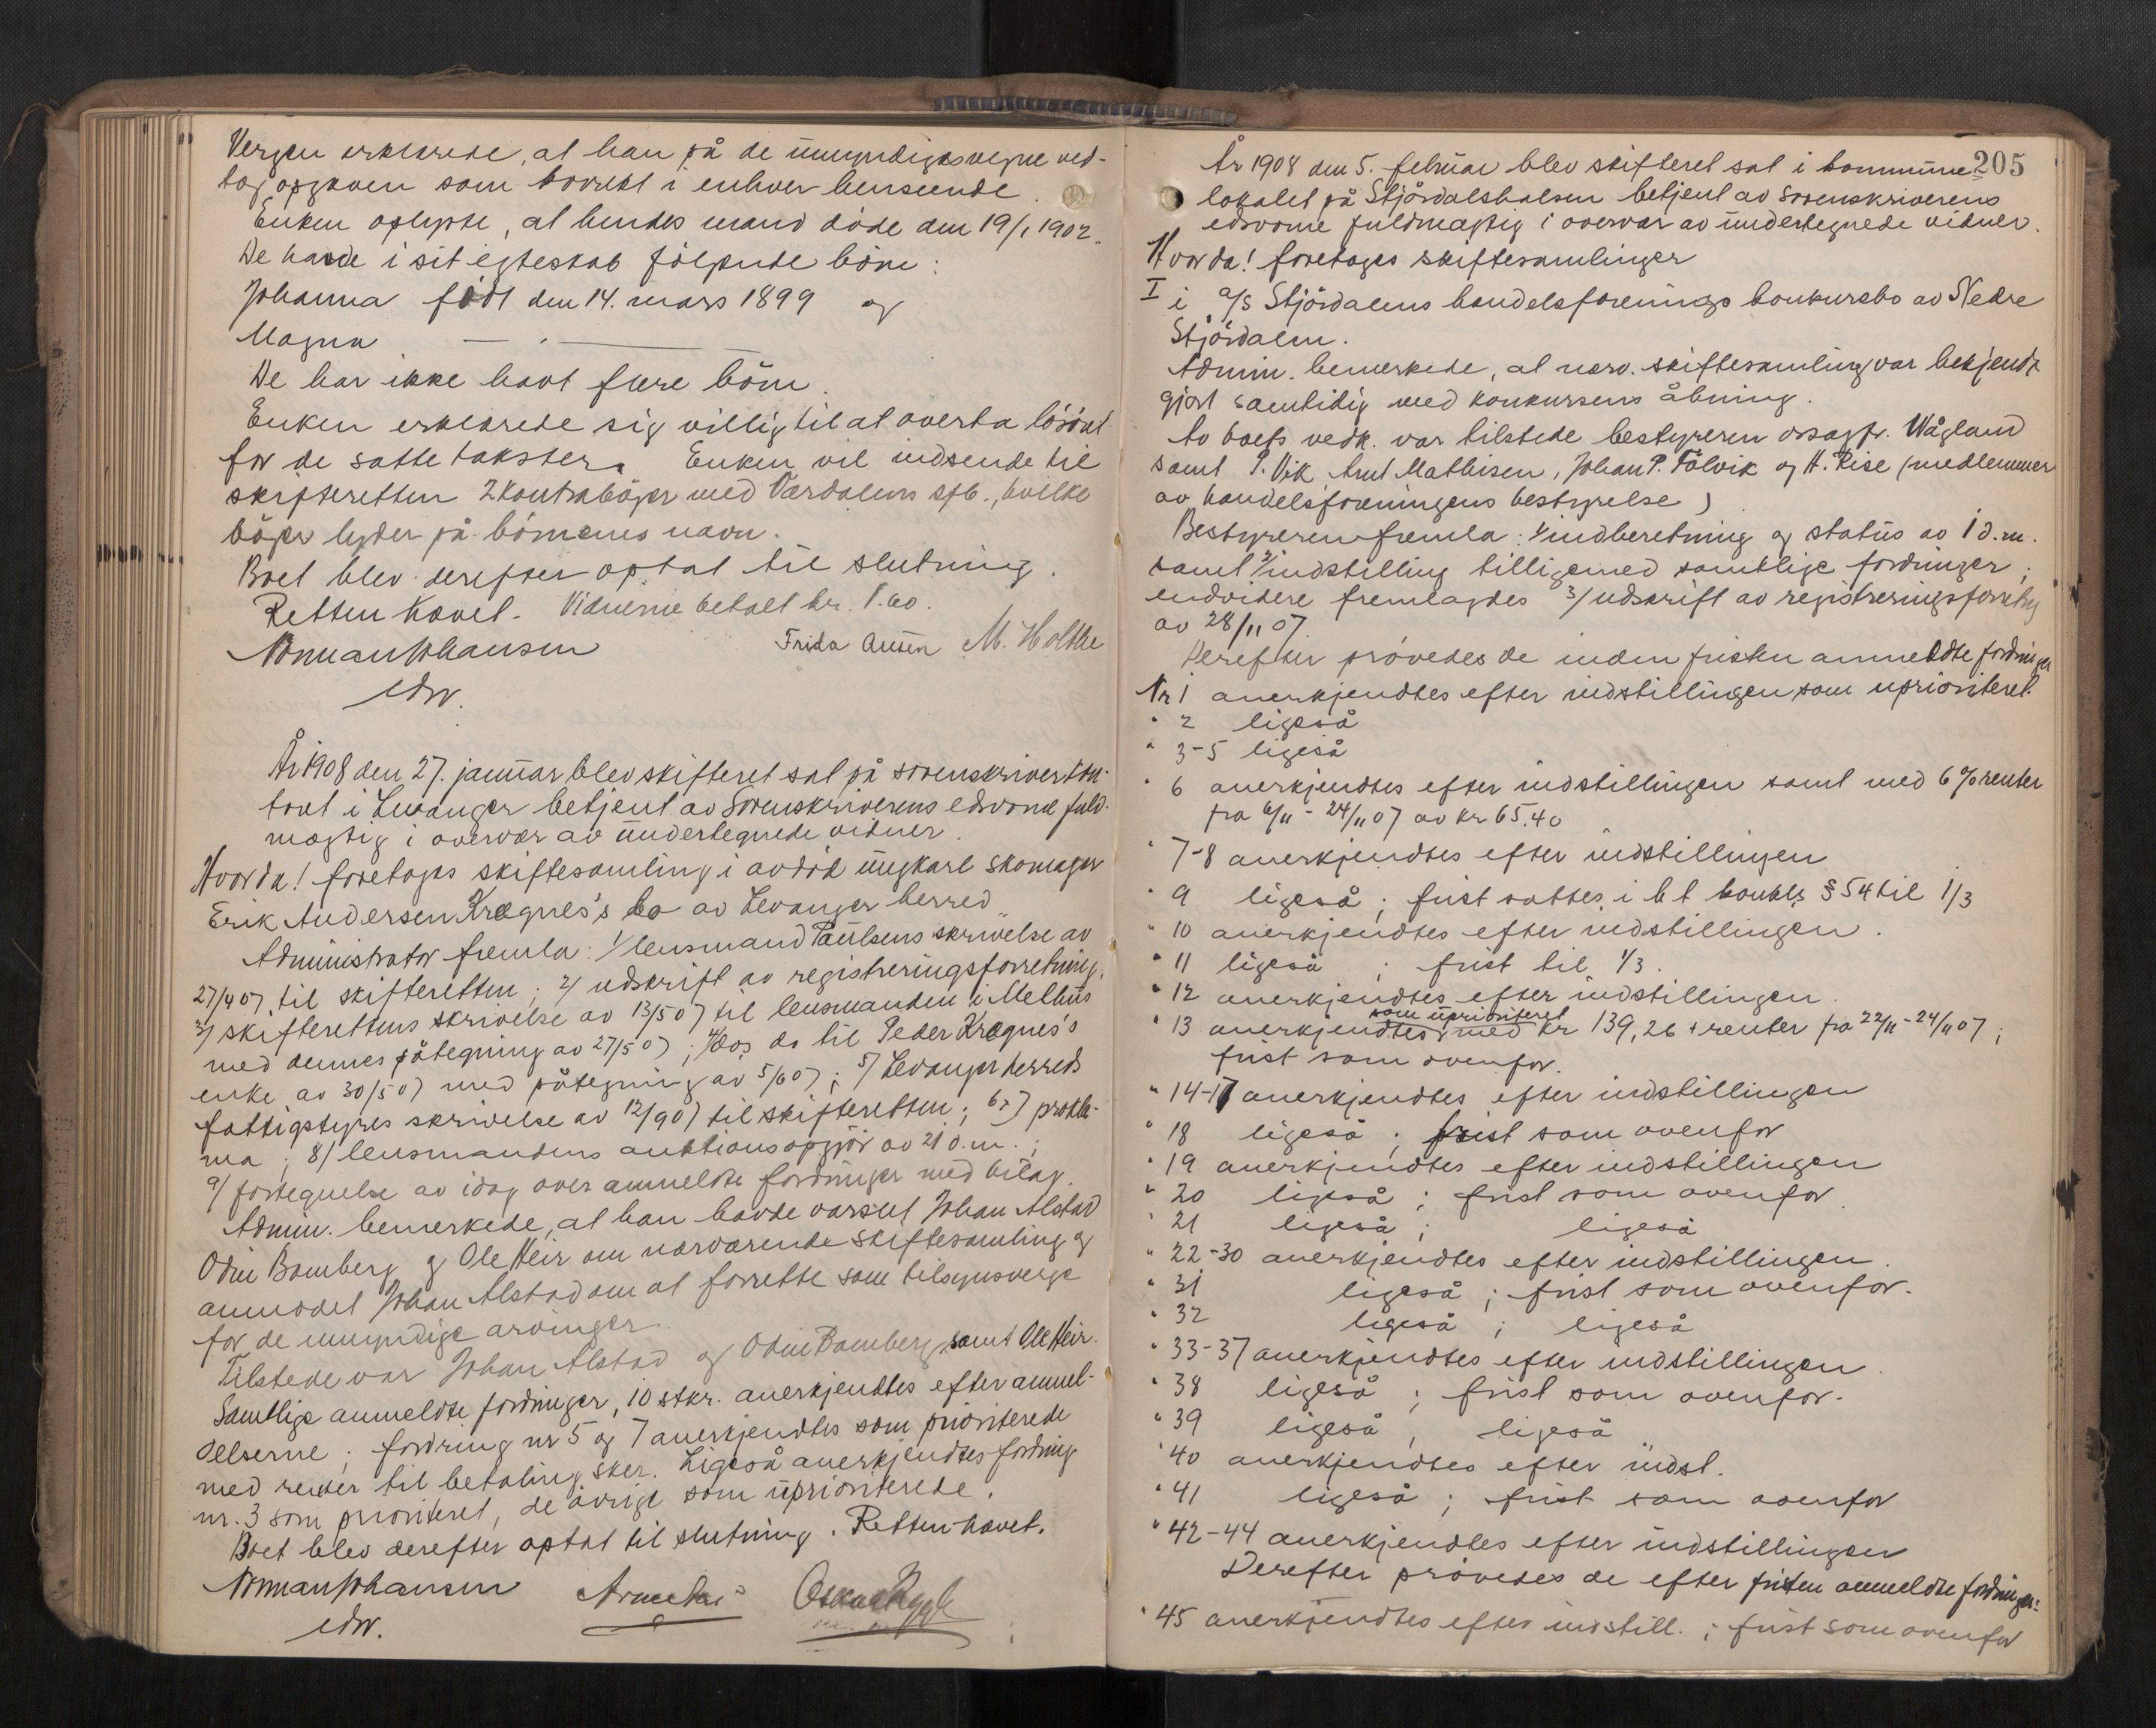 Vergen erklærede, at han på de umyndiges vegne ved-
tog opgaven som korrekt i enhver henseende.
Enken oplyste, at hendes mand døde den 19/1 1902.
De havde i sit egteskab følgende børn:
Johanna født den 14. mars 1899 og
Magna — " —
De har ikke havt flere børn.
Enken erklærede sig villig til at overta løsøret
for de satte takster. Enken vil indsende til
skifteretten 2 kontrabøger med Værdalens spb., hvilke
bøger lyder på børnenes navn.
Boet blev derefter optat til slutning.
Retten hævet. Vidnerne betalt kr. 1.60.
Norman Johansen Frida Ausen M. Holthe
edsv.
År 1908 den 27. januar blev skifteret sat på sorenskriverkon-
toret i Levanger betjent av Sorenskriverens edsvorne fuld-
mægtig i overvær av undertegnede vidner.
Hvorda! foretoges skiftesamling i avdød ungkarl skomager
Erik Andersen Krognes's bo av Levanger herred
Administrator fremla: 1/ lensmand Paulsens skrivelse av
27/4 07 til skifteretten; 2/ udskrift av registreringsforretning;
3/ skifterettens skrivelse av 13/5 07 til lensmanden i Melhus
med dennes påtegning av 27/5 07; 4/ do do til Peder Krognes's
enke av 30/5 07 med påtegning av 5/6 07; 5/ Levanger herreds
fattigstyres skrivelse av 12/9 07 til skifteretten; 6-7/ prokla-
ma; 8/ lensmandens auktionsopgjør av 21 d.m.;
9/ fortegnelse av idag over anmeldte fordringer med bilag.
Admin. bemerkede, at han havde varslet Johan Alstad
Odin Bomberg og Ole Heir om nærværende skiftesamling og
anmodet Johan Alstad om at forrette som tilsynsverge
for de umyndige arvinger.
Tilstede var Johan Alstad og Odin Bomberg samt Ole Heir.
Samtlige anmeldte fordringer, 10 stkr. anerkjendtes efter anmel-
delserne; fordring nr 5 og 7 anerkjendtes som prioriterede
med renter til betaling sker. Ligeså anerkjendtes fordring
nr. 3 som prioriteret, de øvrige som uprioriterede.
Boet blev derefter optat til slutning. Retten hævet.
Norman Johansen
edsv.
205
År 1908 den 5. februar blev skifteret sat i kommune-
lokalet på Stjørdalshalsen betjent av sorenskriverens
edsvorne fuldmægtig i overvær av undertegnede vidner.
Hvorda! foretoges skiftesamlinger
I i a/s Stjørdalens handelsforenings konkursbo av Nedre
Stjørdalen.
Admin. bemerkede, at nærv. skiftesamling var bekjendt-
gjort samtidig med konkursens åbning.
Av boets vedk. var tilstede bestyreren ovsagfr. Wågland
samt P. Vik Arnt Mathisen, Johan P. Fölvik og H. Rise (medlemmer
av handelsforeningens bestyrelse)
Bestyreren fremla: 1/ indberetning og status av 1 d.m.
samt 2/ indstilling tilligemed samtlige fordringer;
endvidere fremlagdes 3/ udskrift av registreringsforretng
av 28/11 07.
Derefter prøvedes de inden fristen anmeldte fordringer
Nr 1 anerkjendtes efter indstillingen som uprioriteret.
" 2 ligeså
" 3-5 ligeså
" 6 anerkjendtes efter indstillingen samt med 6 % renter
fra 6/11 - 24/11 07 av kr 65.40
" 7-8 anerkjendtes efter indstillingen
" 9 ligeså; frist sattes i h t konkl. § 54 til 1/3
" 10 anerkjendtes efter indstillingen.
" 11 ligeså ; frist til 1/3.
" 12 anerkjendtes efter indstillingen.
" 13 anerkjendtes som uprioriteret med kr 139,26 + renter fra 22/11 - 24/11 07;
frist som ovenfor.
" 14-17 anerkjendtes efter indstillingen
" 18 ligeså ; frist som ovenfor
" 19 anerkjendtes efter indstillingen
" 20 ligeså ; frist som ovenfor
" 21 ligeså ; ligeså
" 22-30 anerkjendtes efter indstillingen.
" 31 ligeså ; frist som ovenfor.
" 32 ligeså ; ligeså
" 33-37 anerkjendtes efter indstillingen.
" 38 ligeså ; frist som ovenfor.
" 39 ligeså , ligeså
" 40 anerkjendtes efter indst.
" 41 ligeså ; frist som ovenfor
" 42-44 anerkjendtes efter indstillingen
Derefter prøvedes de efter fristen anmeldte fordringer:
" 45 anerkjendtes efter indstill. ; frist som ovenfor